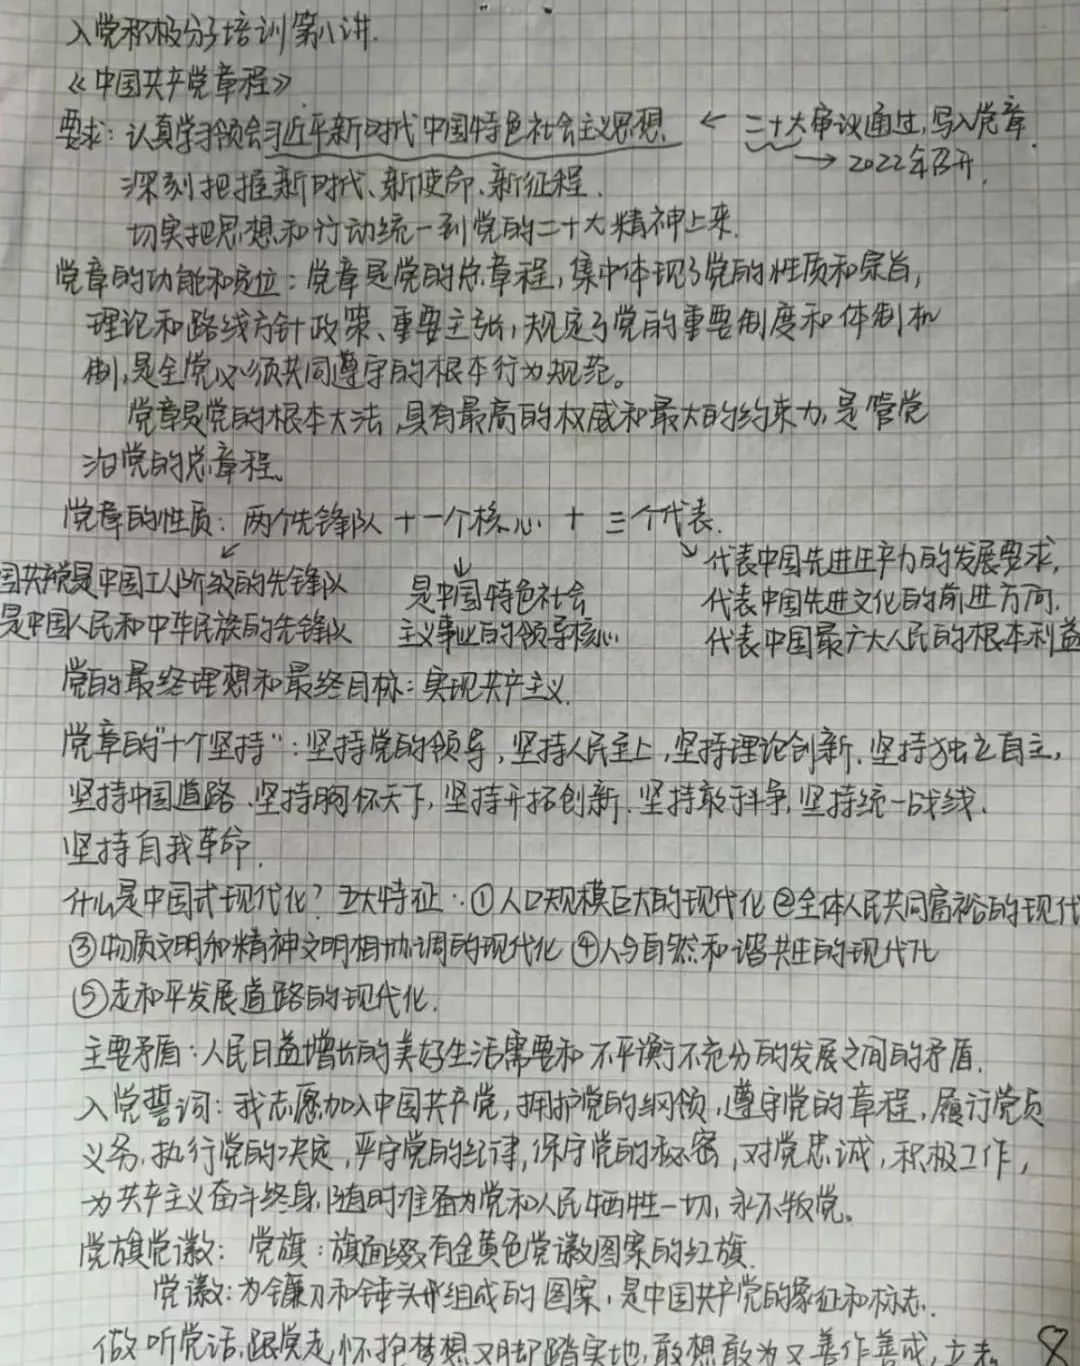 入党积极分子培训第八讲.
《中国共产党章程》
要求：认真学习领会习近平新时代中国特色社会主义思想. ← 二十大审议通过,写入党章.
→ 2022年召开.
深刻把握新时代、新使命、新征程.
切实把思想和行动统一到党的二十大精神上来.
党章的功能和定位：党章是党的总章程,集中体现了党的性质和宗旨,
理论和路线方针政策、重要主张,规定了党的重要制度和体制机
制,是全党必须共同遵守的根本行为规范。
党章是党的根本大法,具有最高的权威和最大的约束力,是管党
治党的总章程。
党章的性质：两个先锋队 + 一个核心 + 三个代表.
国共产党是中国工人阶级的先锋队
是中国人民和中华民族的先锋队
是中国特色社会
主义事业的领导核心
代表中国先进生产力的发展要求,
代表中国先进文化的前进方向.
代表中国最广大人民的根本利益
党的最终理想和最终目标：实现共产主义.
党章的"十个坚持"：坚持党的领导,坚持人民至上,坚持理论创新.坚持独立自主,
坚持中国道路.坚持胸怀天下,坚持开拓创新.坚持敢于斗争,坚持统一战线.
坚持自我革命.
什么是中国式现代化？五大特征：①人口规模巨大的现代化②全体人民共同富裕的现代
③物质文明和精神文明相协调的现代化 ④人与自然和谐共生的现代化
⑤走和平发展道路的现代化.
主要矛盾：人民日益增长的美好生活需要和不平衡不充分的发展之间的矛盾.
入党誓词：我志愿加入中国共产党,拥护党的纲领,遵守党的章程,履行党员
义务,执行党的决定,严守党的纪律,保守党的秘密,对党忠诚,积极工作,
为共产主义奋斗终身,随时准备为党和人民牺牲一切,永不叛党。
党旗党徽：党旗：旗面缀有金黄色党徽图案的红旗.
党徽：为镰刀和锤头形组成的图案,是中国共产党的象征和标志.
做听党话,跟党走,怀抱梦想又脚踏实地,敢想敢为又善作善成,立志